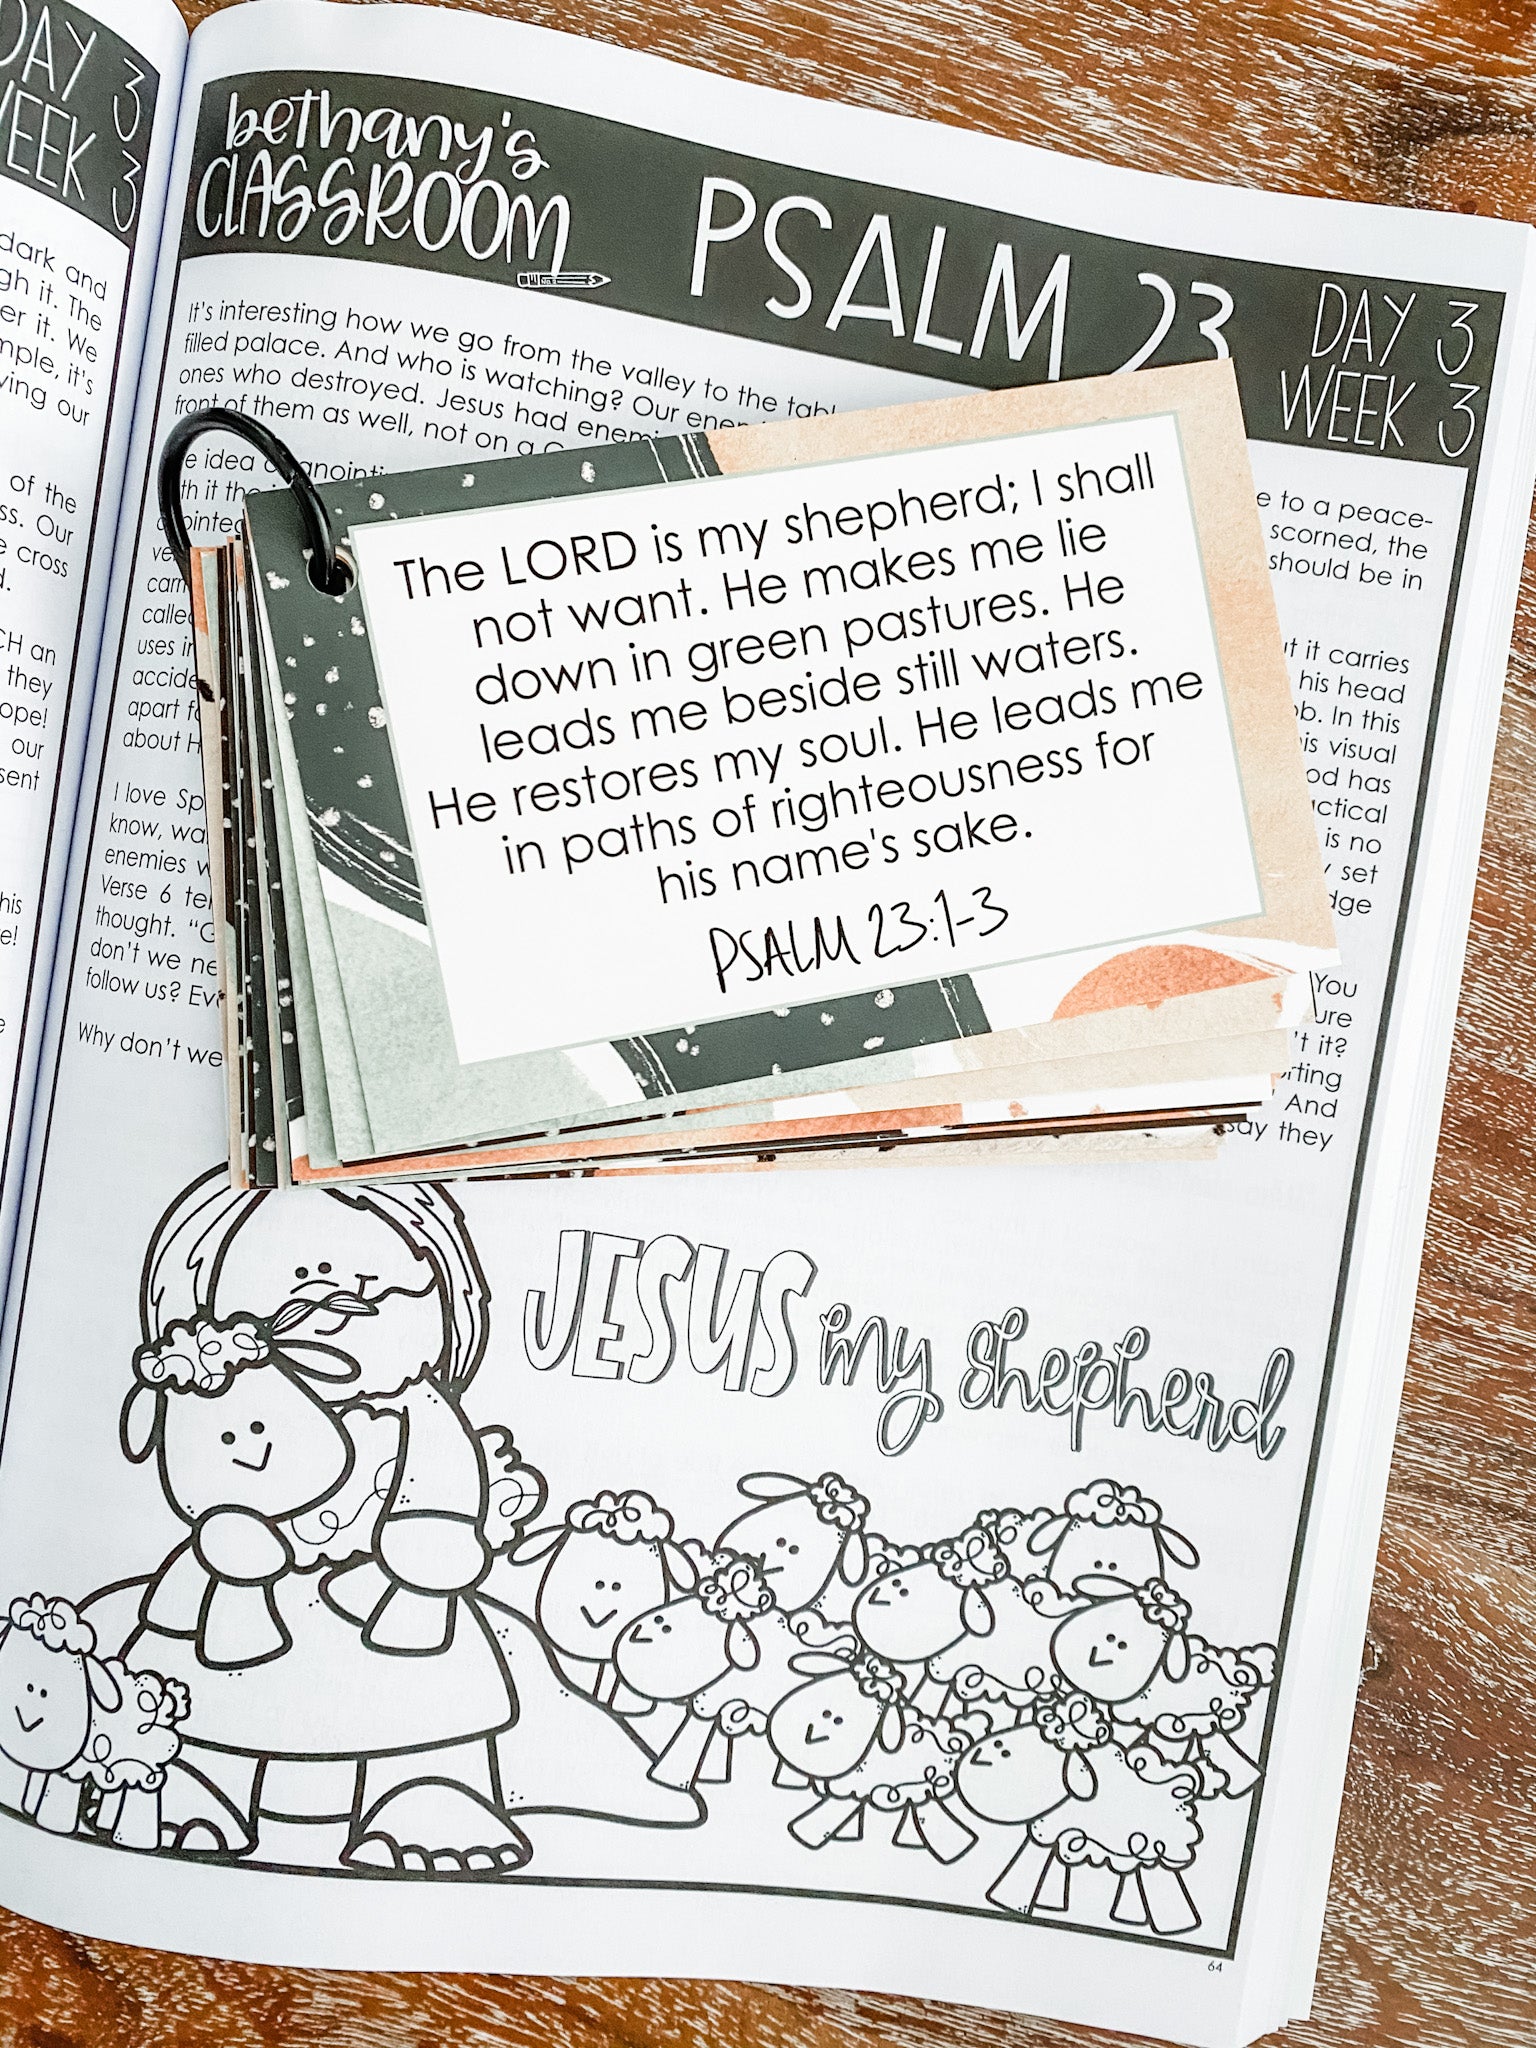 DAY 3
WEEK 3
dark and
gh it. The
er it. We
mple, it's
ving our
of the
ss. Our
e cross
d.
CH an
they
ope!
our
sent
his
e!
e
bethany's
CLASSROOM
PSALM 23
DAY 3
WEEK 3
It's interesting how we go from the valley to the tabl
filled palace. And who is watching? Our ene
ones who destroyed. Jesus had enemi
front of them as well, not on a
e to a peace-
scorned, the
should be in
e idea o anointi
th it the
ointed
ve
carri
calle
uses in
accide
apart f
about H
ut it carries
his head
ob. In this
is visual
od has
actical
is no
y set
dge
I love Sp
know, wa
enemies w
Verse 6 tel
thought. "G
don't we ne
follow us? Ev
You
ure
't it?
rting
And
say they
Why don't we
The LORD is my shepherd; I shall
not want. He makes me lie
down in green pastures. He
leads me beside still waters.
He restores my soul. He leads me
in paths of righteousness for
his name's sake.
PSALM 23:1-3
JESUS my shepherd
64